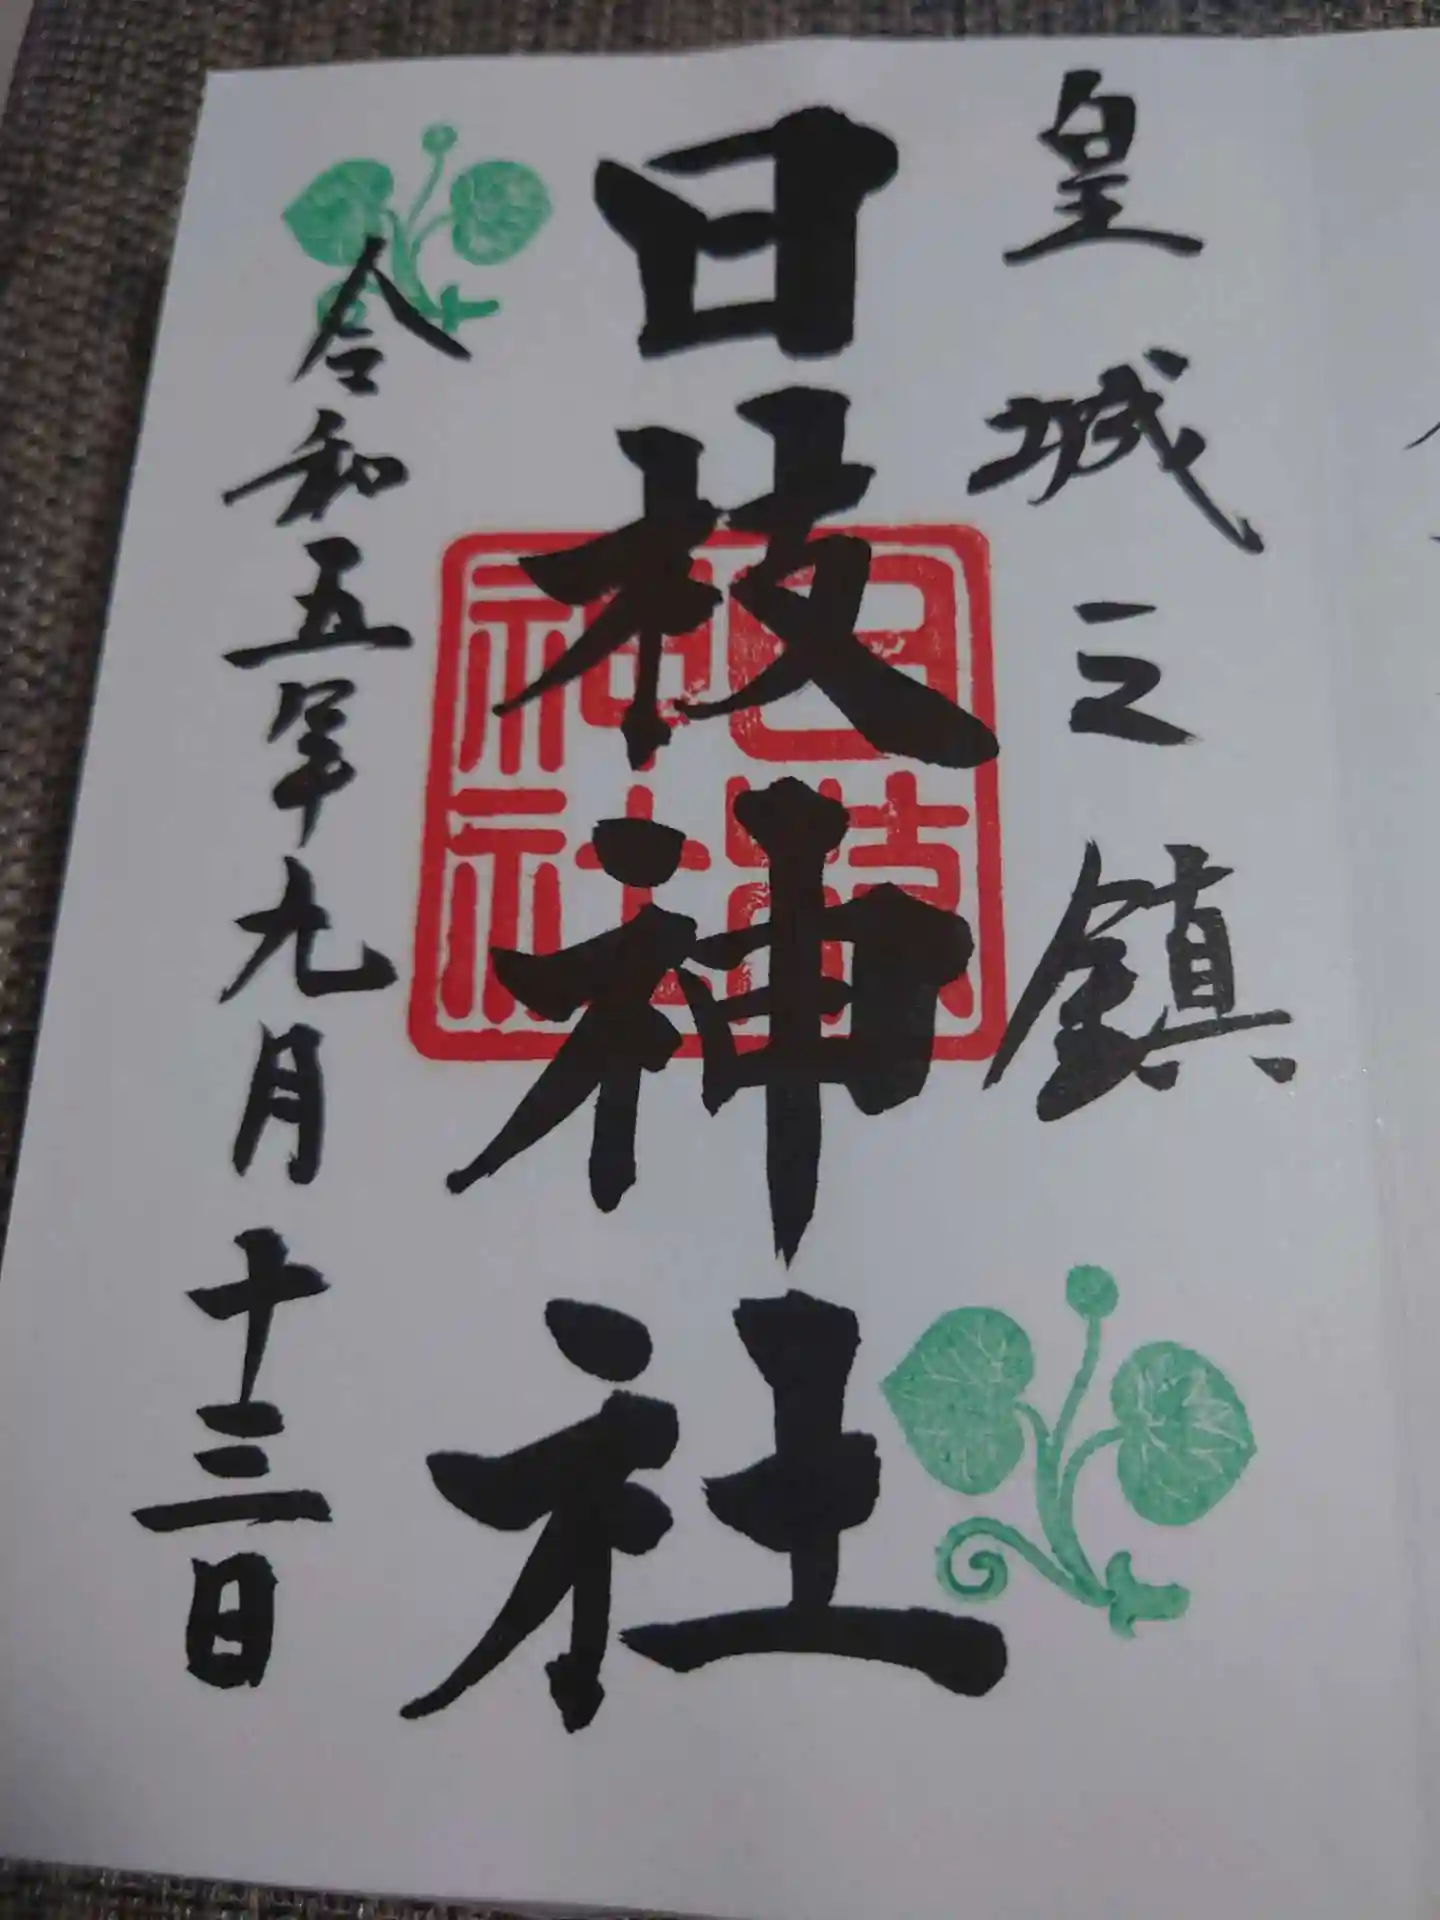 皇城之鎮
日枝神社
日枝神社
令和五年九月十三日